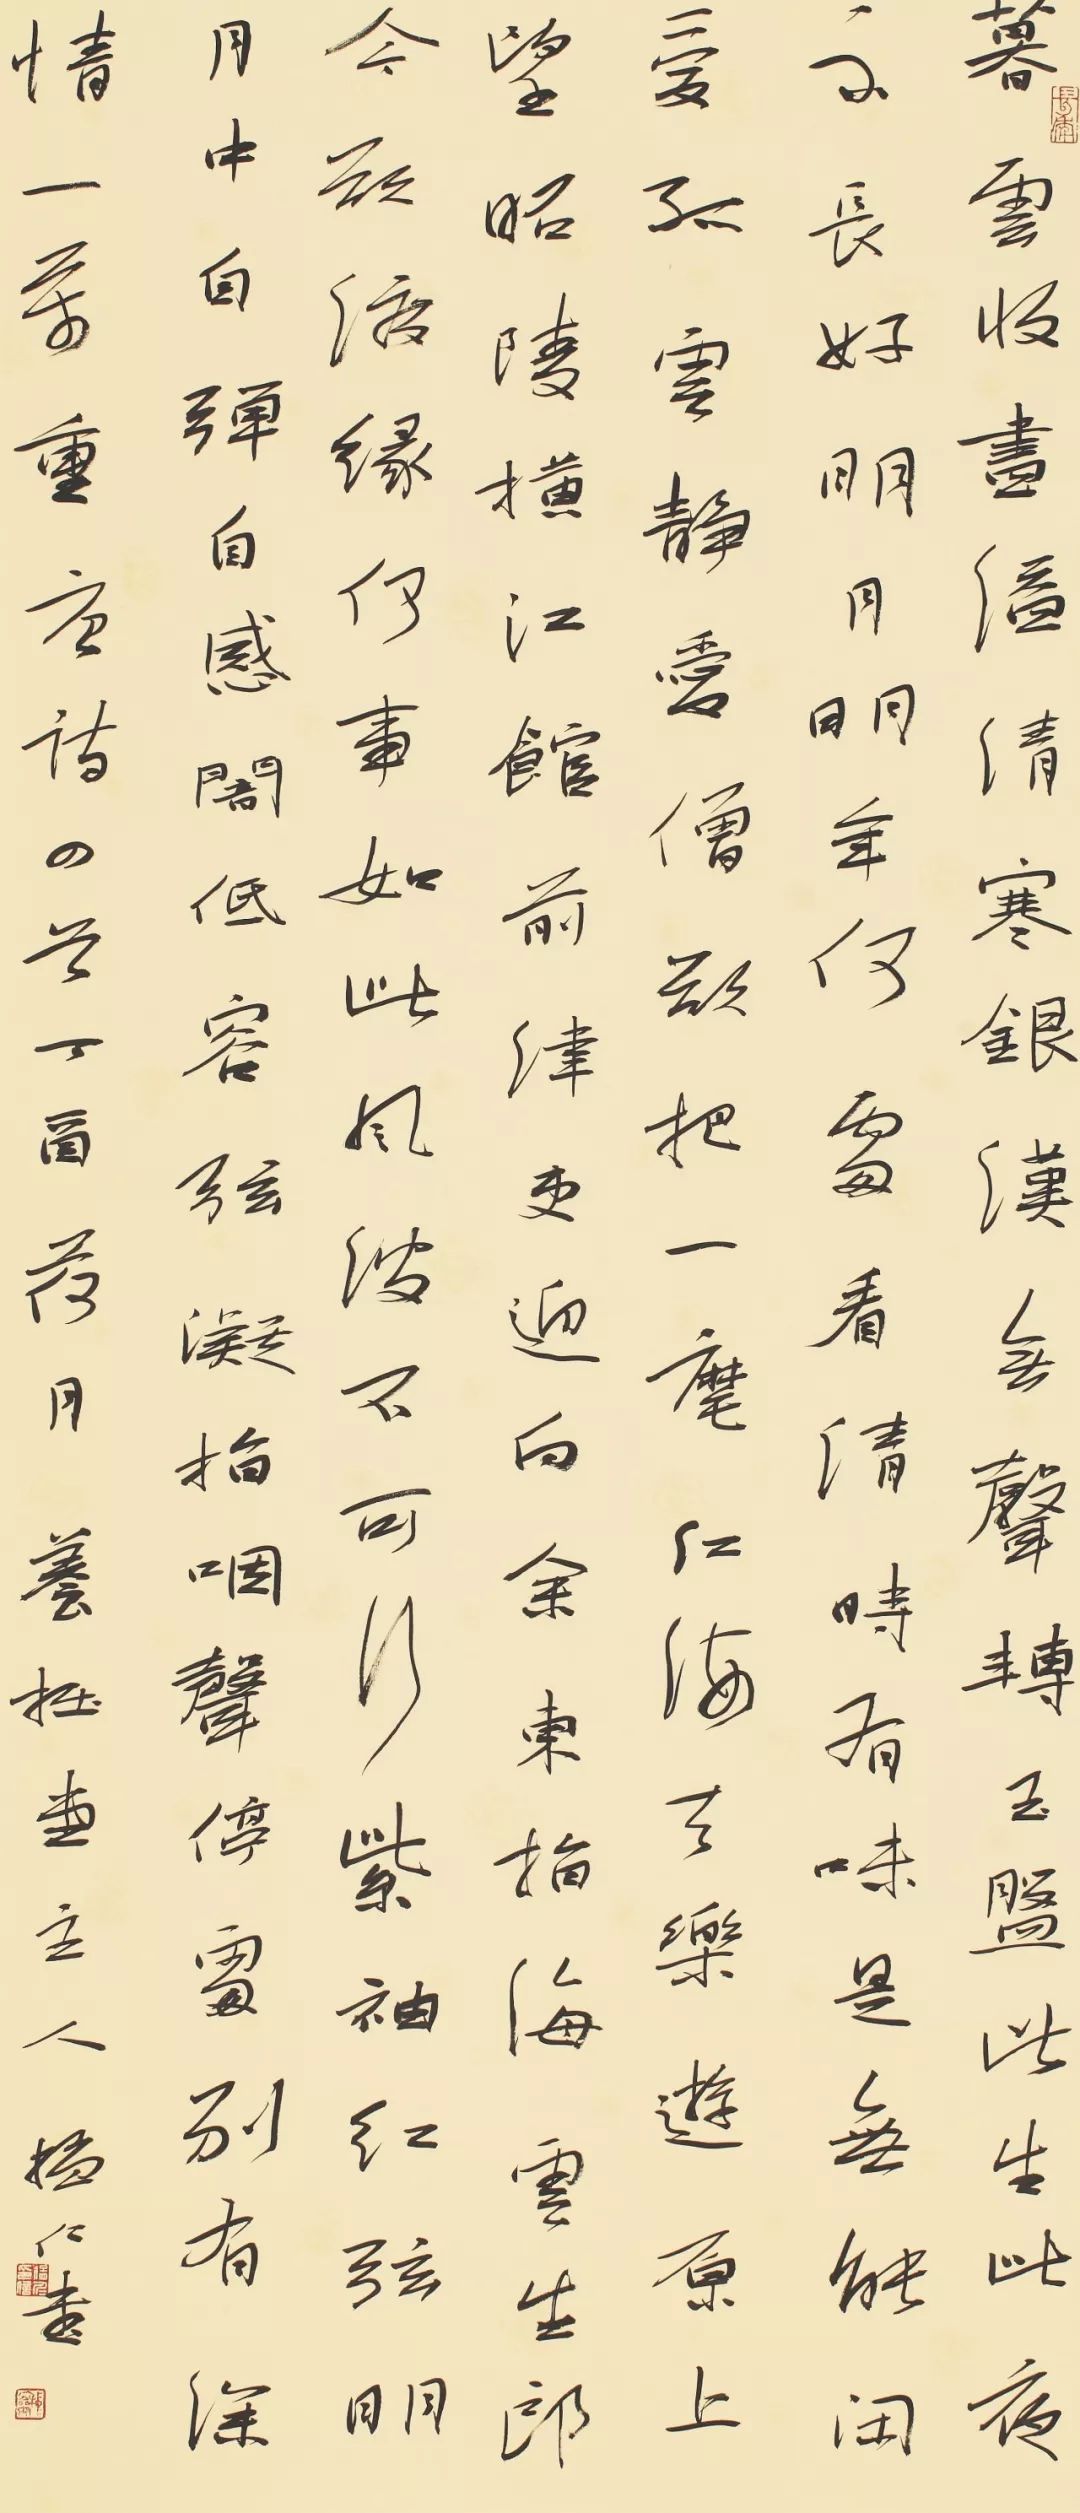 暮雲收盡溢清寒銀漢無聲轉玉盤此生此夜
不長好明月明年何處看清時有味是無能閑
愛孤雲靜愛僧欲把一麾江海去樂遊原上
望昭陵橫江館前津吏迎向余東指海雲生郎
今欲渡緣何事如此風波不可行紫袖紅弦明
月中自彈自感闇低容弦凝指咽聲停處別有深
情一萬重唐詩四首丁酉荷月養拙主人仁書